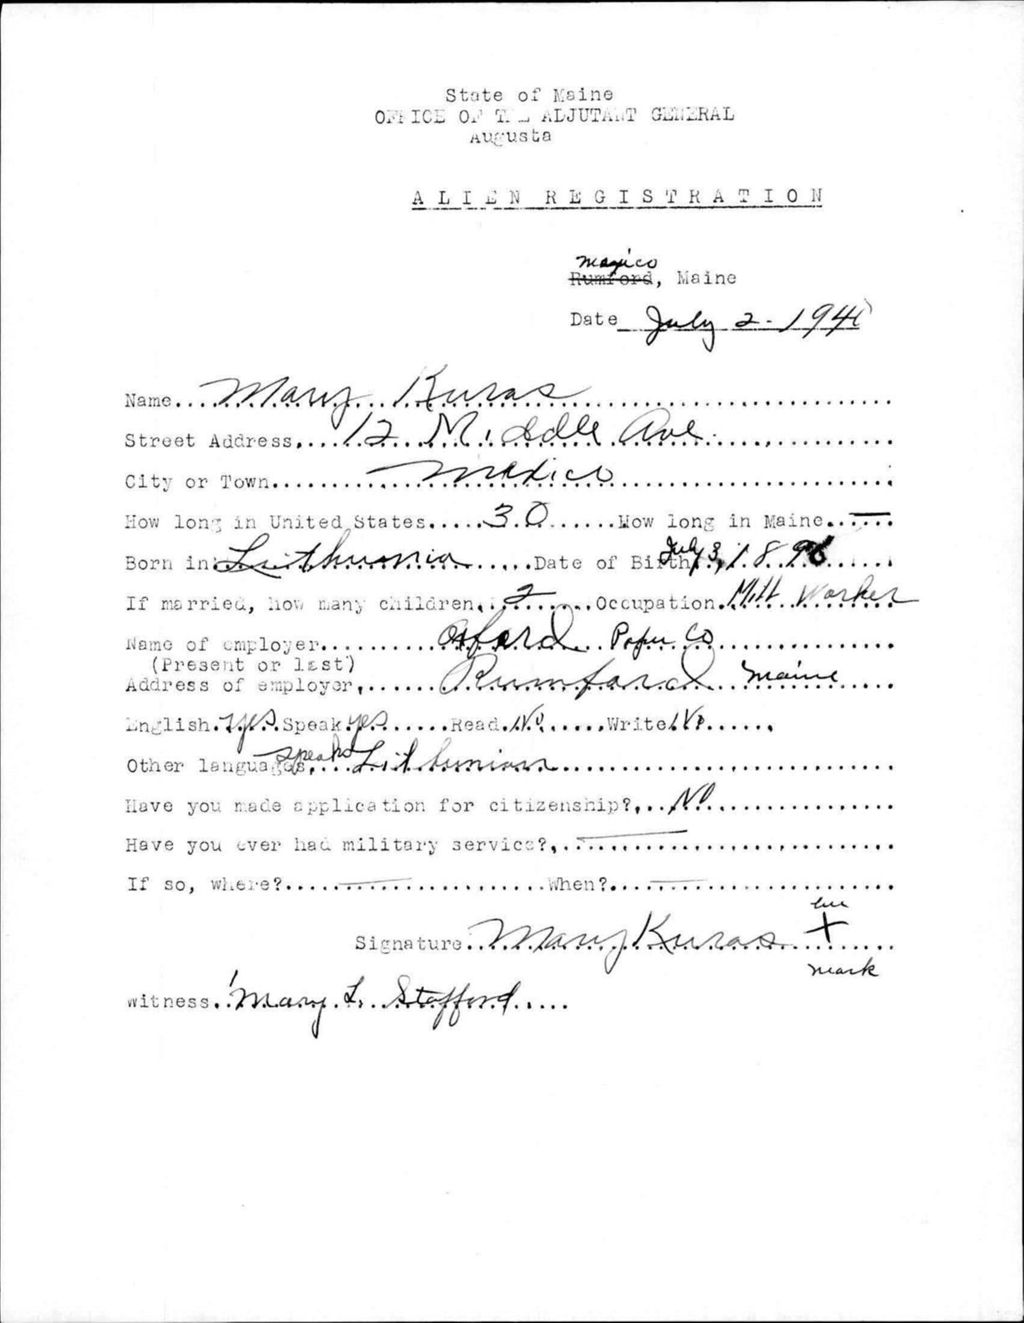 State of Maine
OFFICE OF THE ADJUTANT GENERAL
Augusta
ALIEN REGISTRATION
Mexico
Rumford, Maine
Date July 2 - 194
Name Mary Kuras
Street Address 12 Middle Ave
City or Town Mexico
How long in United States 30 How long in Maine —
Born in Lithuania Date of Birth July 3, 1896
If married, how many children 2 Occupation Mill Worker
Name of employer Oxford Paper Co
(Present or last)
Address of employer Rumford Maine
English yes Speak yes Read No Write No
Other languages speaks Lithuanian
Have you made application for citizenship? No
Have you ever had military service? —
If so, where? — When? —
her
Signature Mary Kuras X
mark
witness Mary L. Stafford